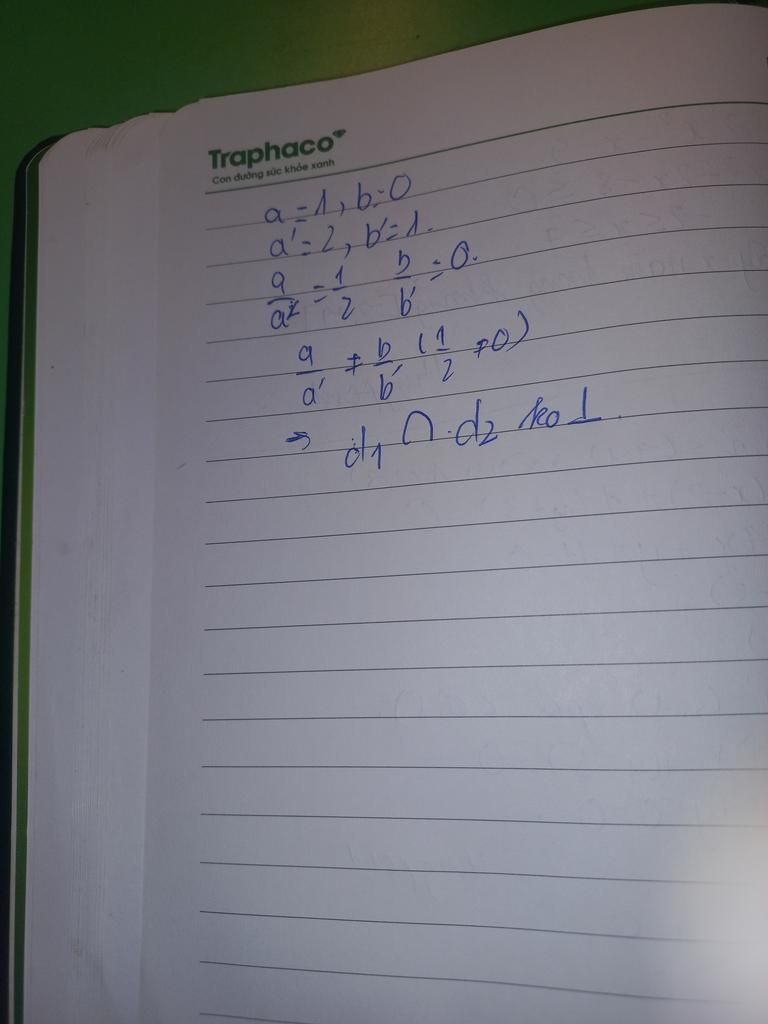 Traphaco
Con đường sức khỏe xanh
a=1, b=0
a'=2, b'=1.
a/a' = 1/2 b/b' = 0.
a/a' ≠ b/b' (1/2 ≠ 0)
=> d1 ∩ d2 ko ⊥.